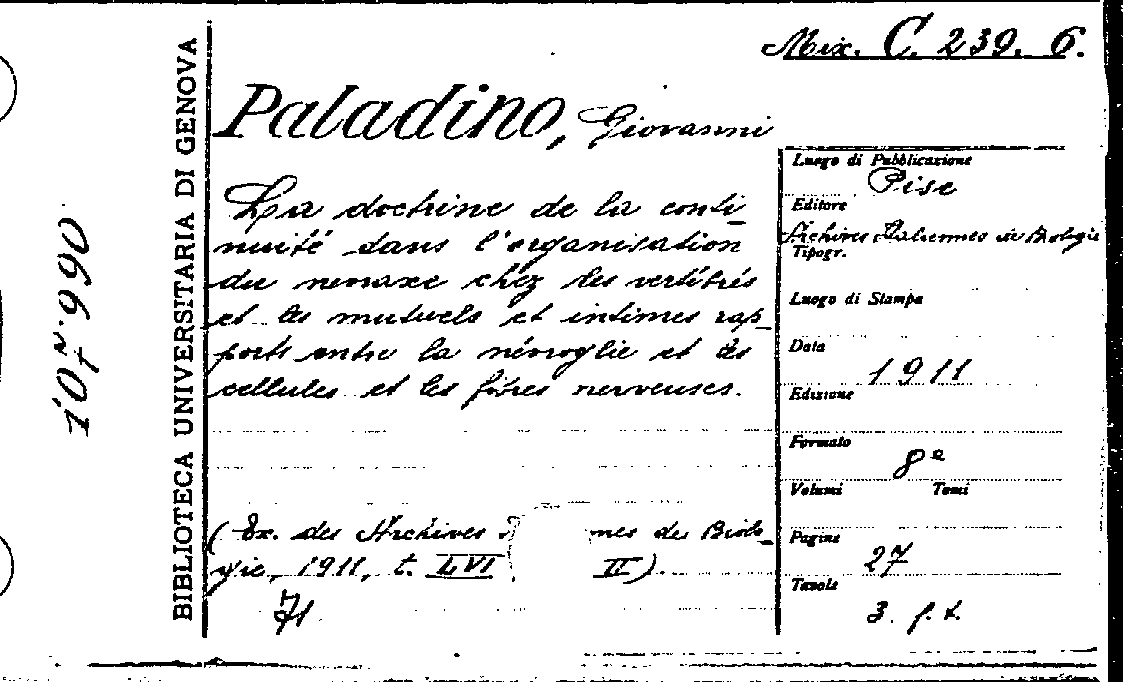 Mix. C. 239. 6.
BIBLIOTECA UNIVERSITARIA DI GENOVA
Paladino, Giovanni
La doctrine de la conti-
nuité dans l'organisation
du nevraxe chez les vertébrés
et les mutuels et intimes rap-
ports entre la névroglie et les
cellules et les fibres nerveuses.
(Ex. des Archives mes de Biolo-
gie, 1911, t. LVI II).
71
Luogo di Pubblicazione
Pise
Editore
Archives Italiennes de Biologie
Tipogr.
Luogo di Stampa
Data
1911
Edizione
Formato
8º
Volumi Tomi
Pagine
27
Tavole
3. f.t.